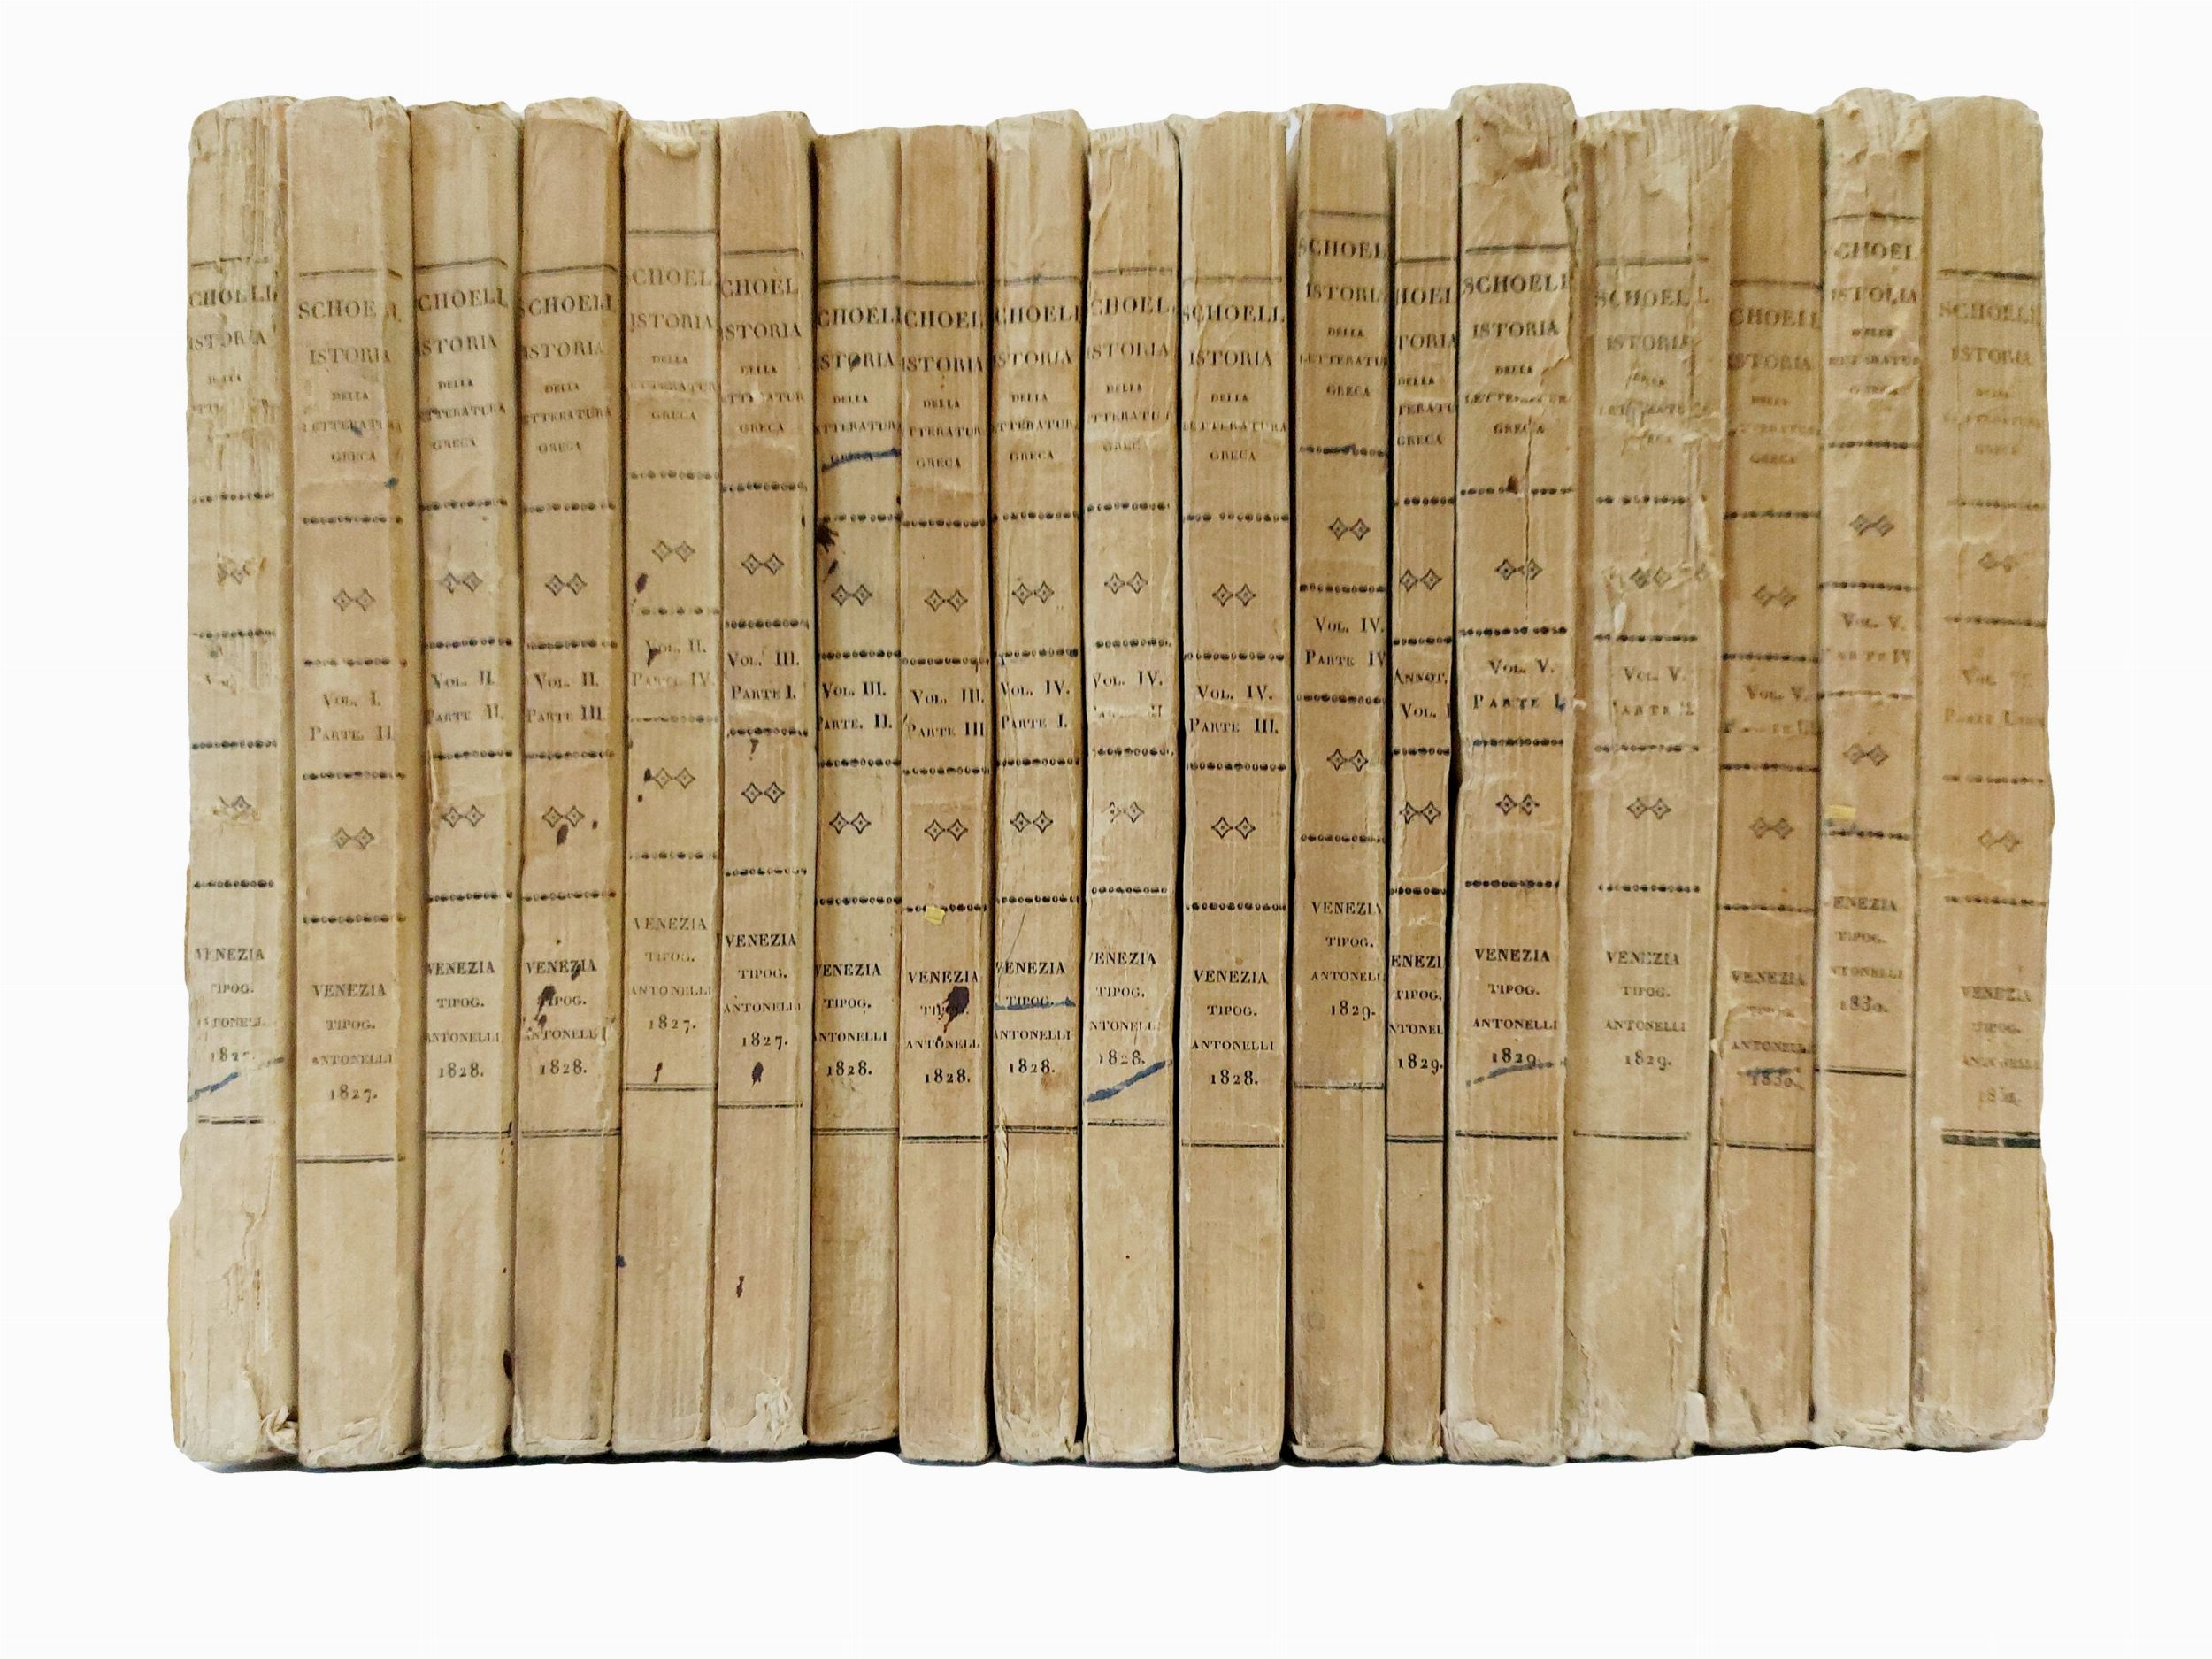 CHOELL
ISTORIA
VENEZIA
TIPOG.
SCHOE
ISTORIA
DELLA
LETTERATU
GRECA
VOL. I.
PARTE. II
VENEZIA
TIPOG.
ANTONELLI
1827.
CHOELL
STORIA
DELLA
TTERATURA
GRECA
VOL. II.
PARTE II.
VENEZIA
TIPOG.
ANTONELLI
1828.
SCHOELL
ISTORIA
DELLA
TTERATURA
GRECA
VOL. II.
PARTE III.
VENEZIA
TIPOG.
ANTONELLI
1828.
CHOEL
ISTORIA
DELLA
GRECA
VOL. II.
PARTE IV.
VENEZIA
TIPOG.
ANTONELLI
1827.
CHOEL
STORIA
DELLA
GRECA
VOL. III.
PARTE I.
VENEZIA
TIPOG.
ANTONELLI
1827.
CHOELL
STORIA
DELLA
TTERATURA
GRECA
VOL. III.
PARTE. II.
VENEZIA
TIPOG.
ANTONELLI
1828.
CHOEL
ISTORIA
DELLA
TTERATUR
GRECA
VOL. III.
PARTE III
VENEZIA
ANTONELL
1828.
CHOELL
STORIA
DELLA
TTERATUR
GRECA
VOL. IV.
PARTE I.
VENEZIA
TIPOG.
ANTONELLI
1828.
CHOEL
ISTORIA
DELLA
TTERATU
GREC
VOL. IV.
II
VENEZIA
TIPOG.
NTONELL
1828.
SCHOELL
ISTORIA
DELLA
LETTERATURA
GRECA
VOL. IV.
PARTE III.
VENEZIA
TIPOG.
ANTONELLI
1828.
SCHOEL
ISTORI
DELLA
LETTERATU
GRECA
VOL. IV.
PARTE IV
VENEZIA
TIPOG.
ANTONELI
1829.
HOEL
TORIA
DELLA
TERATU
GRECA
ANNOT.
VOL. I
ENEZI
TIPOG.
NTONEL
1829.
SCHOELL
ISTORIA
DELLA
GRECA
VOL. V.
PARTE I.
VENEZIA
TIPOG.
ANTONELLI
1829.
SCHOELL
ISTORIA
DELLA
VOL. V.
PARTE
VENEZIA
TIPOG.
ANTONELLI
1829.
CHOELL
ISTORIA
DELLA
GRECA
VOL. V.
VENEZIA
ANTONELLI
1830.
CHOEL
ISTORIA
DELLA
GRECA
VOL. V.
PARTE IV
ENEZIA
TIPOG.
NTONELLI
1830.
SCHOELL
ISTORIA
GRECA
VOL.
PARTE
VENEZIA
TIPOG.